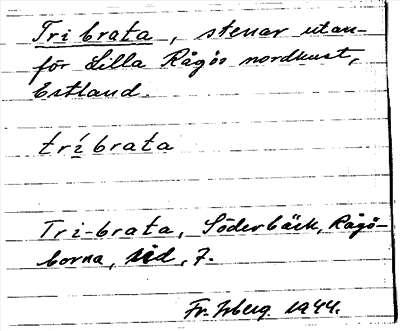 Tri brata, stenar utan-
för Lilla Rågös nordkust,
Estland.
trí brata
Tri-brata, Söderbäck, Rågö-
borna, sid, 7.
Fr. 1944.